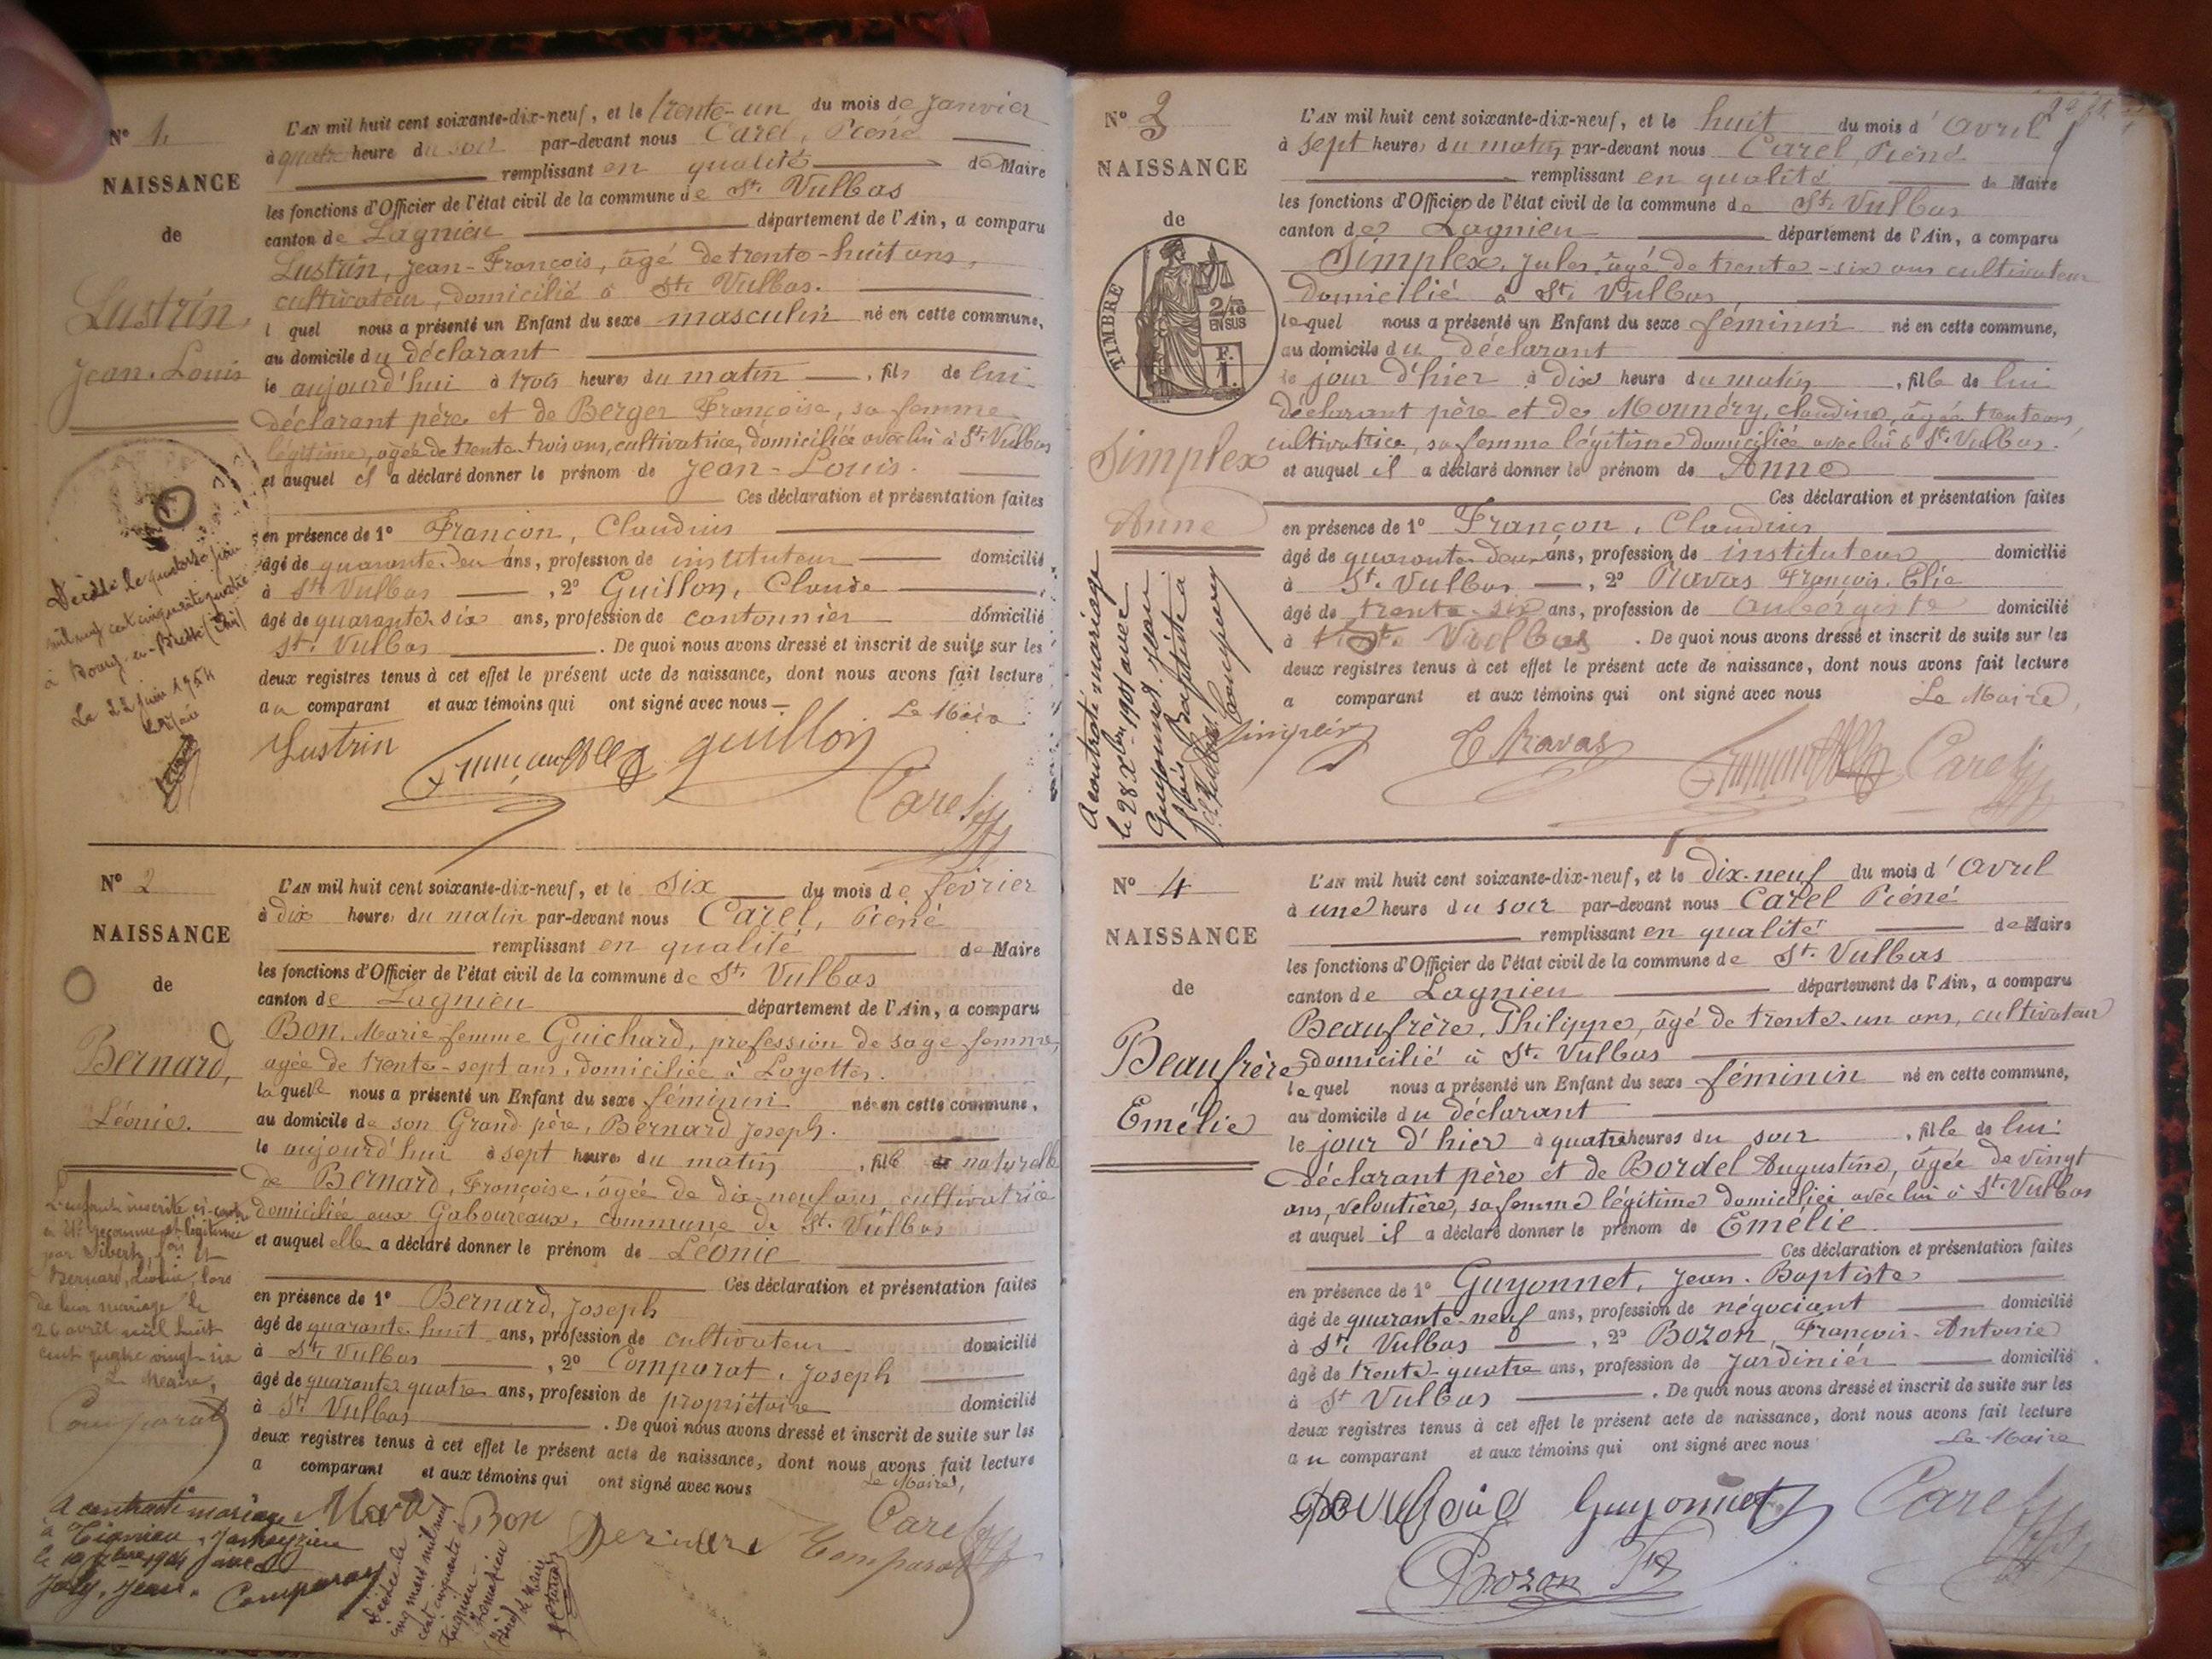 N° 1.
NAISSANCE
de
Lustrin,
Jean-Louis
L'AN mil huit cent soixante-dix-neuf, et le trente-un du mois de Janvier
à quatre heure du soir par-devant nous Carel, Réné
remplissant en qualité de Maire
les fonctions d'Officier de l'état civil de la commune de St. Vulbas
canton de Lagnieu département de l'Ain, a comparu
Lustrin, Jean-François, âgé de trente-huit ans,
cultivateur, domicilié à St. Vulbas.
l quel nous a présenté un Enfant du sexe masculin né en cette commune,
au domicile du déclarant
le aujourd'hui à trois heures du matin, fils de lui
déclarant père et de Berger Françoise, sa femme
légitime, âgée de trente-trois ans, cultivatrice, domiciliée avec lui à St. Vulbas
et auquel il a déclaré donner le prénom de Jean-Louis.
Ces déclaration et présentation faites
en présence de 1° Françon, Claudius
âgé de quarante-deux ans, profession de instituteur domicilié
à St. Vulbas, 2° Guillon, Claude
âgé de quarante six ans, profession de cantonnier domicilié
St. Vulbas. De quoi nous avons dressé et inscrit de suite sur les
deux registres tenus à cet effet le présent acte de naissance, dont nous avons fait lecture
au comparant et aux témoins qui ont signé avec nous
Le Maire
Lustrin guillon Carel
Décédé le quatorze juin
mil neuf cent cinquante quatre
à Bourg-en-Bresse (Ain)
Le 22 juin 1954
N° 2
NAISSANCE
de
Bernard,
Léonie.
L'AN mil huit cent soixante-dix-neuf, et le six du mois de février
à dix heures du matin par-devant nous Carel, Réné
remplissant en qualité de Maire
les fonctions d'Officier de l'état civil de la commune de St. Vulbas
canton de Lagnieu département de l'Ain, a comparu
Bon, Marie femme Guichard, profession de sage femme,
agée de trente-sept ans, domiciliée à Loyettes.
laquelle nous a présenté un Enfant du sexe féminin né en cette commune,
au domicile de son Grand père, Bernard Joseph.
le aujourd'hui à sept heures du matin, fille de naturelle
de Bernard, Françoise, âgée de dix-neuf ans cultivatrice
domiciliée aux Gaboureaux, commune de St. Vulbas
et auquel elle a déclaré donner le prénom de Léonie
Ces déclaration et présentation faites
en présence de 1° Bernard, Joseph
âgé de quarante-huit ans, profession de cultivateur domicilié
à St. Vulbas, 2° Comparat, Joseph
âgé de quarante quatre ans, profession de propriétaire domicilié
à St. Vulbas. De quoi nous avons dressé et inscrit de suite sur les
deux registres tenus à cet effet le présent acte de naissance, dont nous avons fait lecture
a comparant et aux témoins qui ont signé avec nous
Le Maire,
Bon Bernard Comparat Carel
L'enfant inscrite ci-contre
a été reconnue et légitimée
par et
Bernard, lors
de leur mariage le
26 avril mil huit
cent quatre vingt-six
Le Maire,
Comparat
A contracté mariage
à Tignieu-Jameyzieu
le 1904 avec
Joly, Jean.
Comparat
Décédée le
cinq mars mil neuf
cent cinquante à
Tignieu-
Jameyzieu
N° 3
NAISSANCE
de
TIMBRE
2/10
EN SUS
F.
1.
Simplex
Anne
L'AN mil huit cent soixante-dix-neuf, et le huit du mois d'Avril
à sept heures du matin, par-devant nous Carel, Réné
remplissant en qualité de Maire
les fonctions d'Officier de l'état civil de la commune de St. Vulbas
canton de Lagnieu département de l'Ain, a comparu
Simplex, Jules, âgé de trente-six ans cultivateur
domicilié à St. Vulbas
lequel nous a présenté un Enfant du sexe féminin né en cette commune,
au domicile du déclarant
le jour d'hier à dix heure du matin, fille de lui
déclarant père et de Mounéry, claudine, âgée trente ans,
cultivatrice, sa femme légitime domiciliée avec lui à St. Vulbas.
et auquel il a déclaré donner le prénom de Anne
Ces déclaration et présentation faites
en présence de 1° Françon, Claudius
âgé de quarante-deux ans, profession de instituteur domicilié
à St. Vulbas, 2° Ravas François-Elie
âgé de trente-six ans, profession de Aubergiste domicilié
à St. Vulbas. De quoi nous avons dressé et inscrit de suite sur les
deux registres tenus à cet effet le présent acte de naissance, dont nous avons fait lecture
a comparant et aux témoins qui ont signé avec nous
Le Maire,
Simplex E Ravas Carel
A contracté mariage
le 28 Xbre 1901 avec
Guyonnet Jean
Baptiste à
N° 4
NAISSANCE
de
Beaufrère
Emélie
L'AN mil huit cent soixante-dix-neuf, et le dix-neuf du mois d'Avril
à une heure du soir par-devant nous Carel Réné
remplissant en qualité de Maire
les fonctions d'Officier de l'état civil de la commune de St. Vulbas
canton de Lagnieu département de l'Ain, a comparu
Beaufrère, Philippe, âgé de trente-un ans, cultivateur
domicilié à St. Vulbas
lequel nous a présenté un Enfant du sexe féminin né en cette commune,
au domicile du déclarant
le jour d'hier à quatre heures du soir, fille de lui
déclarant père et de Bordel Augustine, âgée de vingt
ans, veloutière, sa femme légitime domiciliée avec lui à St. Vulbas
et auquel il a déclaré donner le prénom de Emélie
Ces déclaration et présentation faites
en présence de 1° Guyonnet, Jean-Baptiste
âgé de quarante-neuf ans, profession de négociant domicilié
à St. Vulbas, 2° Bozon, François-Antoine
âgé de trente-quatre ans, profession de jardinier domicilié
à St Vulbas. De quoi nous avons dressé et inscrit de suite sur les
deux registres tenus à cet effet le présent acte de naissance, dont nous avons fait lecture
au comparant et aux témoins qui ont signé avec nous
Le Maire
Guyonnet Carel
Bozon